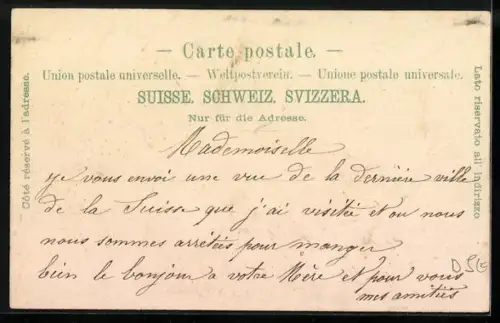 — Carte postale. —
Union postale universelle. — Weltpostverein. — Unione postale universale.
SUISSE. SCHWEIZ. SVIZZERA.
Nur für die Adresse.
Côté réservé à l'adresse.
Lato riservato all' indirizzo
Mademoiselle
je vous envoi une vue de la dernière ville
de la Suisse que j'ai visitié et ou nous
nous sommes arrêtés pour manger
bien le bonjour a votre Mère et pour vous
mes amitiés